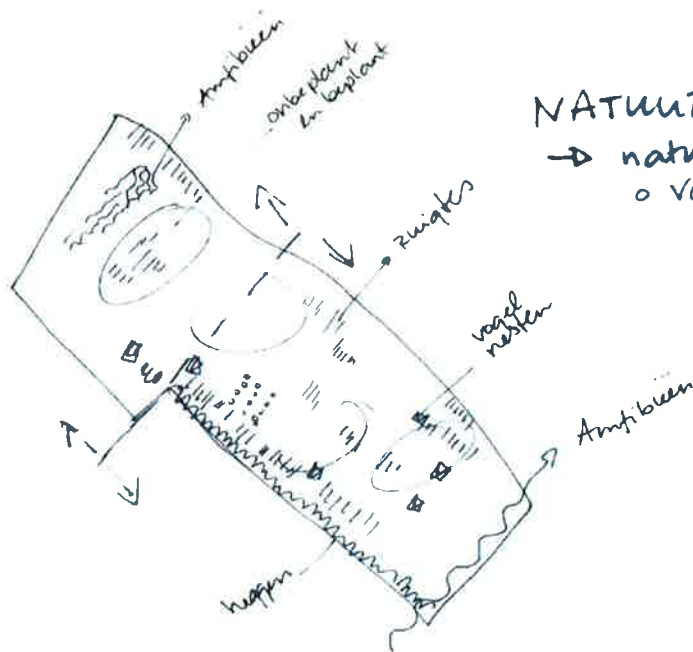 Amfibieën
onbeplant
en beplant
NATUUR
→ natu
o Vo
ruigtes
vogel
nesten
Amfibieën
heggen